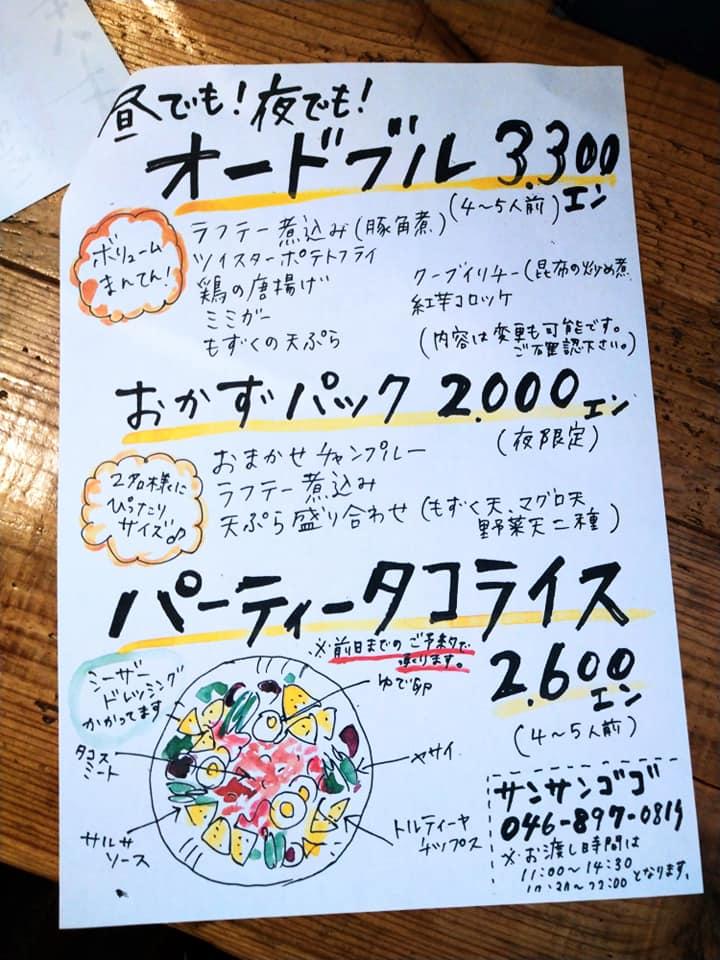 昼でも!夜でも!
オードブル 3.300
エン
(4〜5人前)
ボリューム
まんてん!
ラフテー煮込み(豚角煮)
ツイスターポテトフライ
鶏の唐揚げ
ミミガー
もずくの天ぷら
クーブイリチー(昆布の炒め煮
紅芋コロッケ
(内容は変更も可能です。
ご確認下さい。)
おかずパック 2.000エン
(夜限定)
2名様に
ぴったり
サイズ♫
おまかせチャンプルー
ラフテー煮込み
天ぷら盛り合わせ(もずく天、マグロ天
野菜天二種)
パーティータコライス
※前日までのご予約で
承ります。
2.600
エン
(4〜5人前)
シーザー
ドレッシング
かかってます
ゆで卵
タコス
ミート
ヤサイ
サルサ
ソース
トルティーヤ
チップス
サンサンゴゴ
046-897-0819
※お渡し時間は
11:00〜14:30
22:00となります。